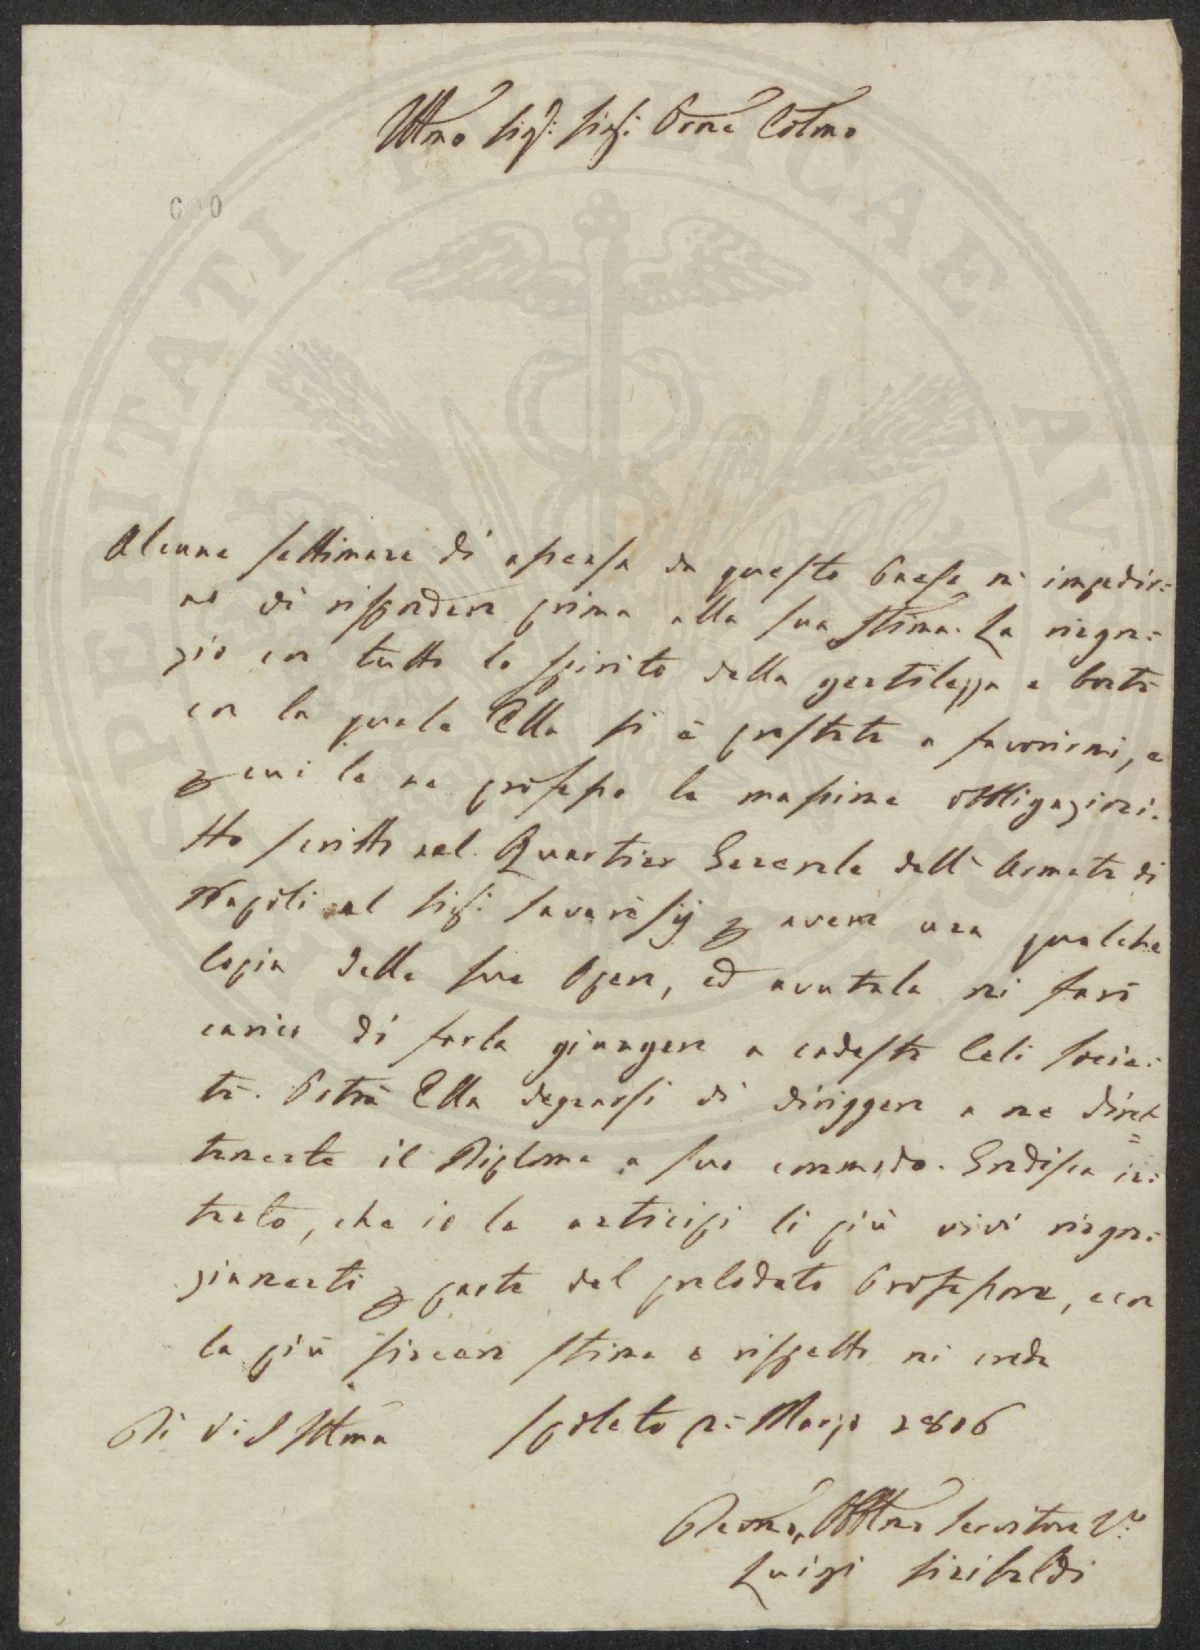 Illmo Sig.r Sig.r Prne Colmo
600
Alcune settimane di assenza da questo Paese mi impediro=
no di rispondere prima alla sua stima. La ringra=
zio con tutto lo spirito della gentilezza e bontà
con la quale Ella si è prestata a favorirmi, e
p cui le ne professo le massime obbligazioni.
Ho scritto nel Quartier Generale dell'Armata di
Napoli al Sig.r Savaresij p avere una qualche
Copia delle sue Opere, ed avutala mi farò
carico di farla giungere a codesta Celi Socie=
tà. Potrà Ella degnarsi di diriggere a me diret=
tamente il Diploma a suo commodo. Gradisca in=
tanto, che io le anticipi li più vivi ringra=
ziamenti p parte del prelodato Professore, e con
la più sincera stima e rispetto mi creda
Di V. S Illma Spoleto Marzo 1806
Devmo, Obblmo Servitore V.o
Luigi Sinibaldi
SPERITATI PUBLICAE AV